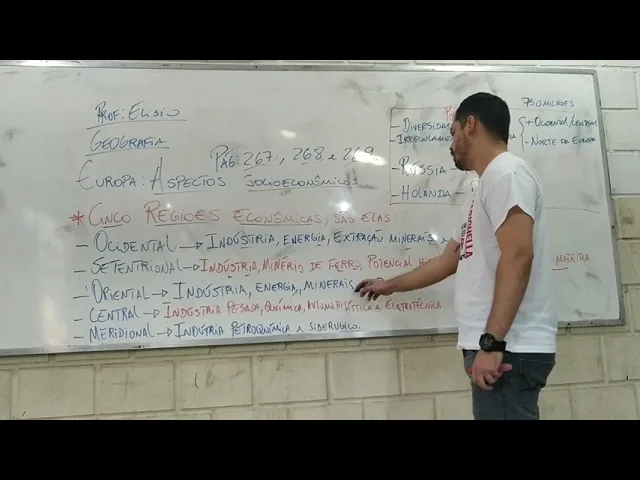 Prof: Elisio
Geografia
Pág: 267, 268 e 269.
Europa: Aspectos Socioeconômicos
* Cinco Regiões Econômicas, são elas:
- Ocidental → Indústria, Energia, Extração Minerais
- Setentrional → Indústria, Minério de Ferro, Potencial
madeira
- Oriental → Indústria, energia, minerais
- Central → Indústria Pesada, Química, Automobilística e Eletrotécnica
- Meridional → Indútria Petroquímica e Siderugico.
- Diversidad
- Irregularme
- Rússia -
- Holanda -
750 milhões
+ Ocidental/Central
- Norte da Europa